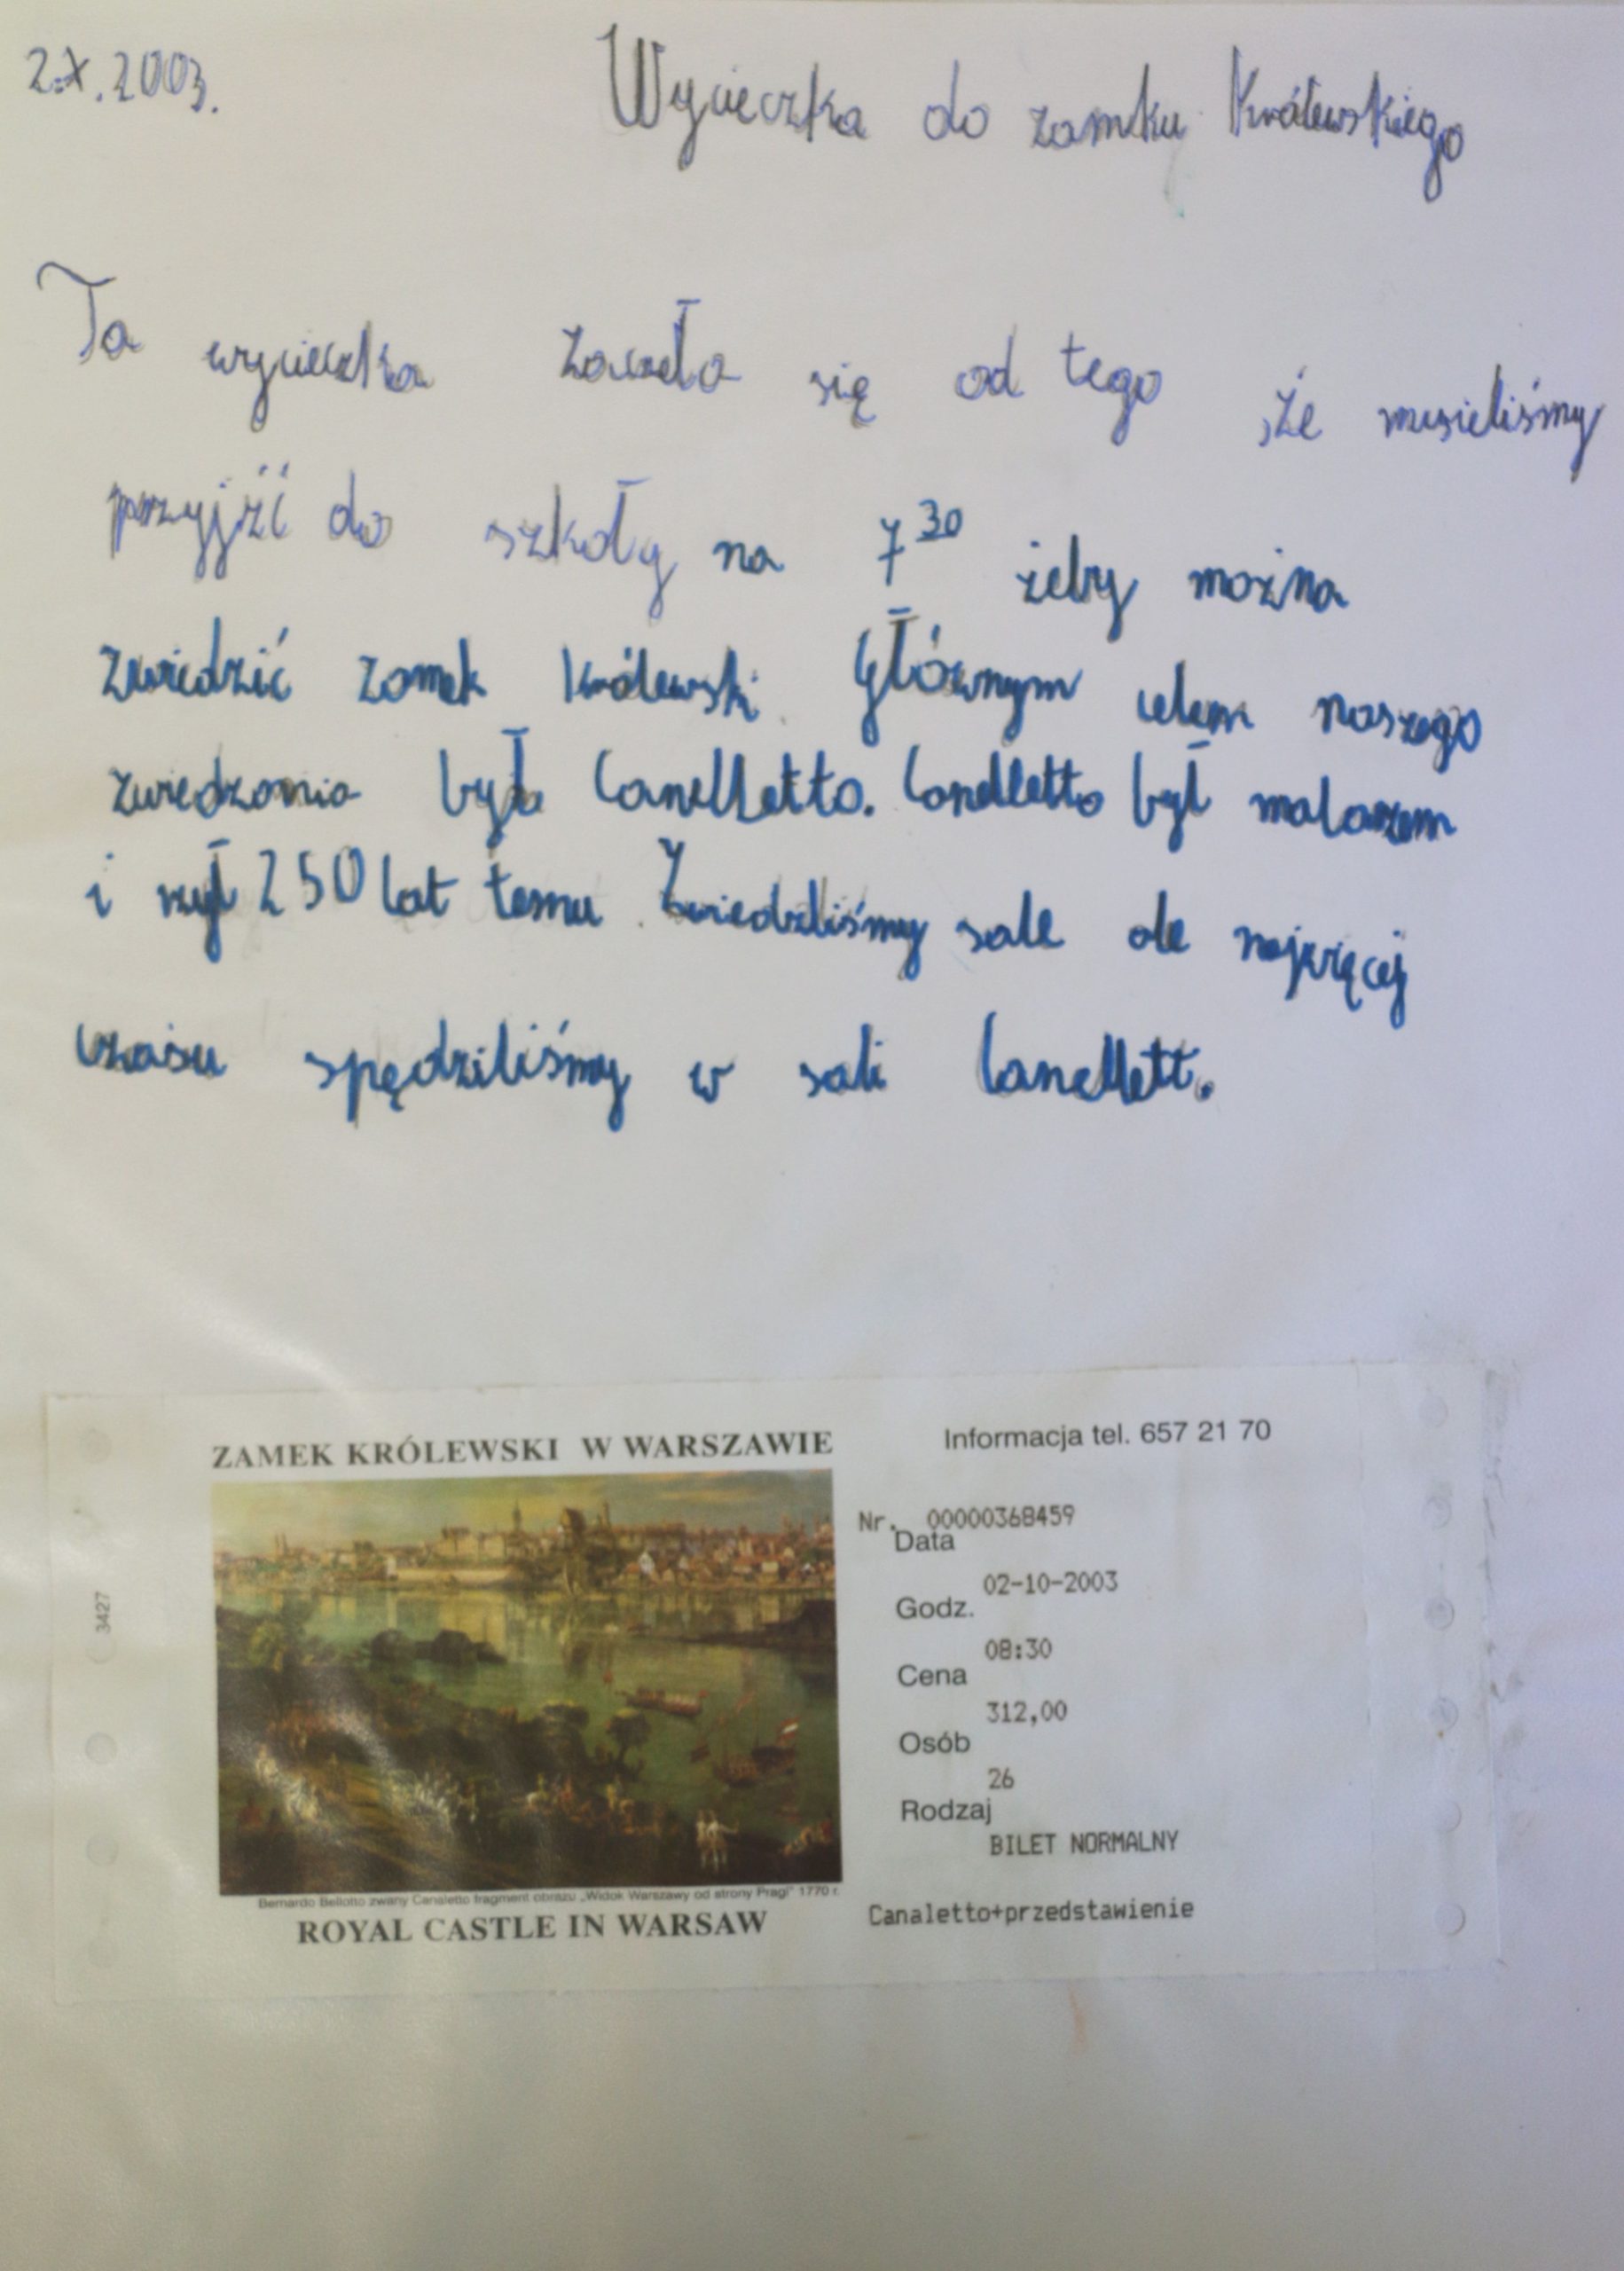 2.X.2003.
Wycieczka do zamku Królewskiego
Ta wycieczka zaczeła się od tego że musieliśmy
przyjźć do szkoły na 7³⁰ żeby można
zwiedzić zamek Królewski. Głównym celem naszego
zwiedzania był Canelletto. Canelletto był malarzem
i rzył 250 lat temu. Zwiedziliśmy sale ale najwięcej
czasu spędziliśmy w sali Canellett.
ZAMEK KRÓLEWSKI W WARSZAWIE
Informacja tel. 657 21 70
Nr. 00000368459
Data
02-10-2003
Godz.
08:30
Cena
312,00
Osób
26
Rodzaj
BILET NORMALNY
Canaletto+przedstawienie
3427
Bernardo Bellotto zwany Canaletto fragment obrazu „Widok Warszawy od strony Pragi" 1770 r.
ROYAL CASTLE IN WARSAW